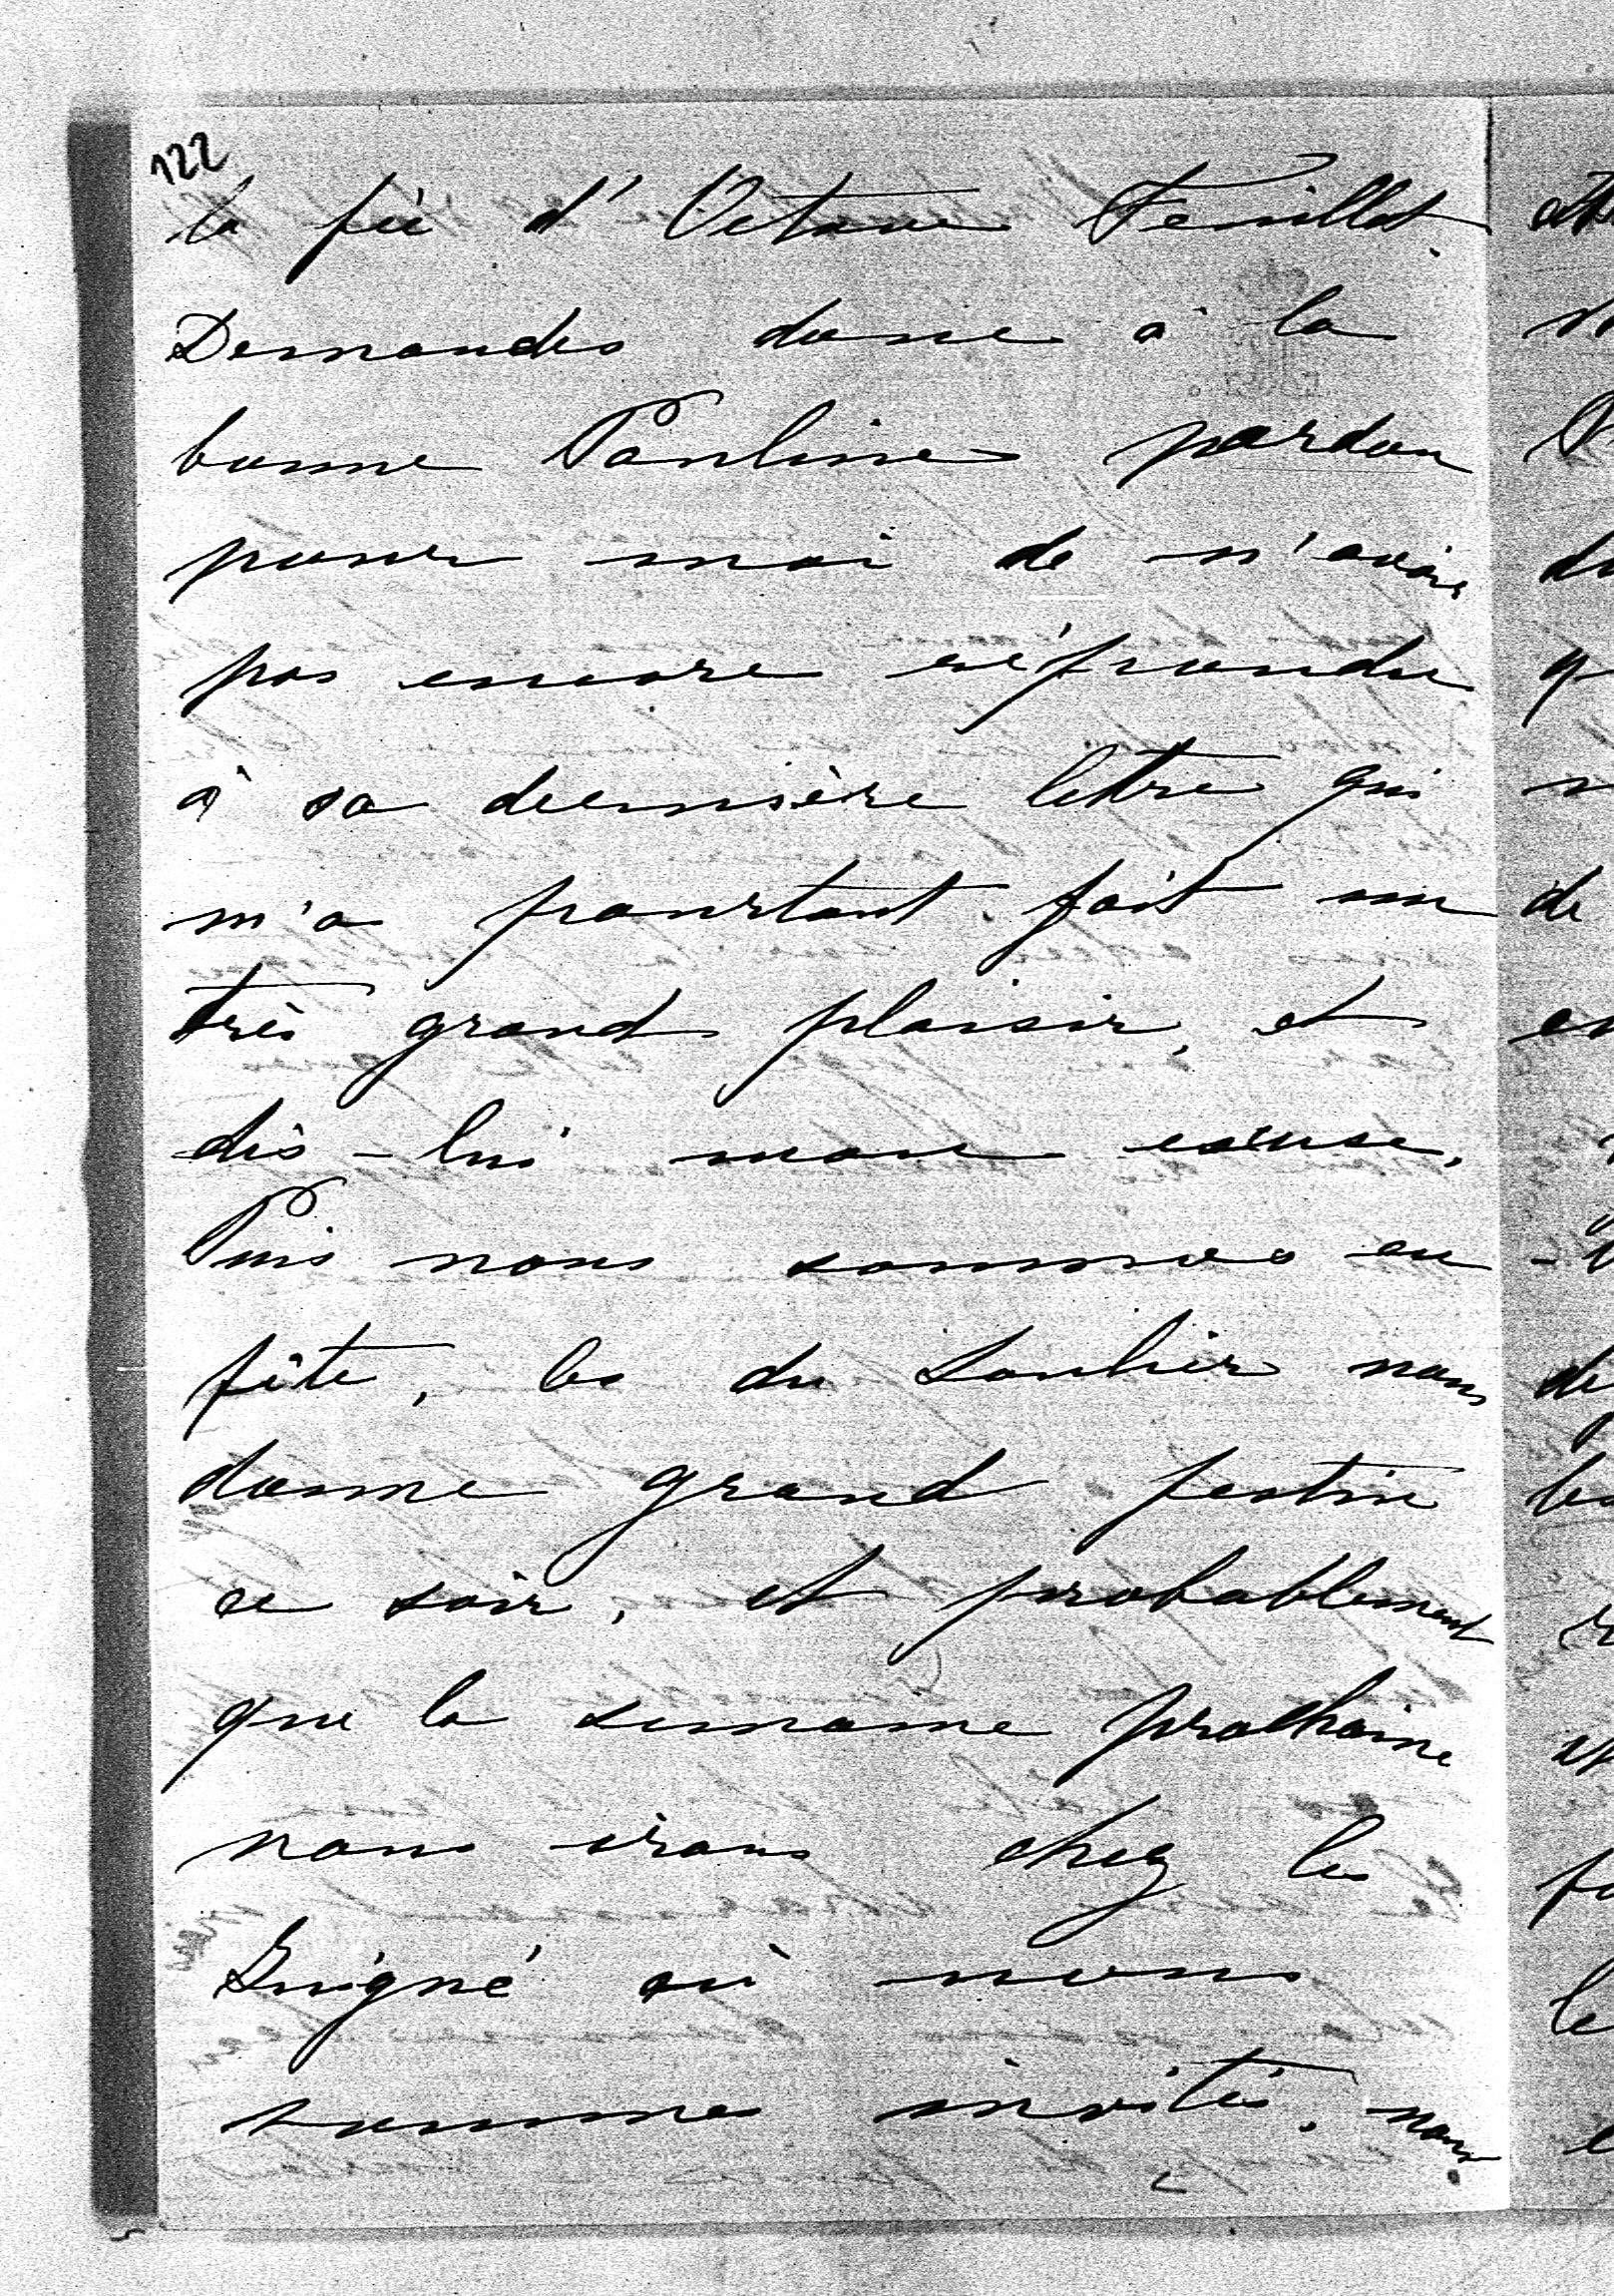 122
la fée d'Octave Feuillet.
Demandes donc à la
bonne Pauline pardon
pour moi de n'avoir
pas encore répondu
à sa dernière lettre qui
m'a pourtant fait un
très grand plaisir, et
dis-lui mon excuse.
Puis nous sommes en
fête, les du Soulier nous
donne grand festin
ce soir, et probablement
que la semaine prochaine
nous irons chez les
Guigné où nous
sommes invités, nous